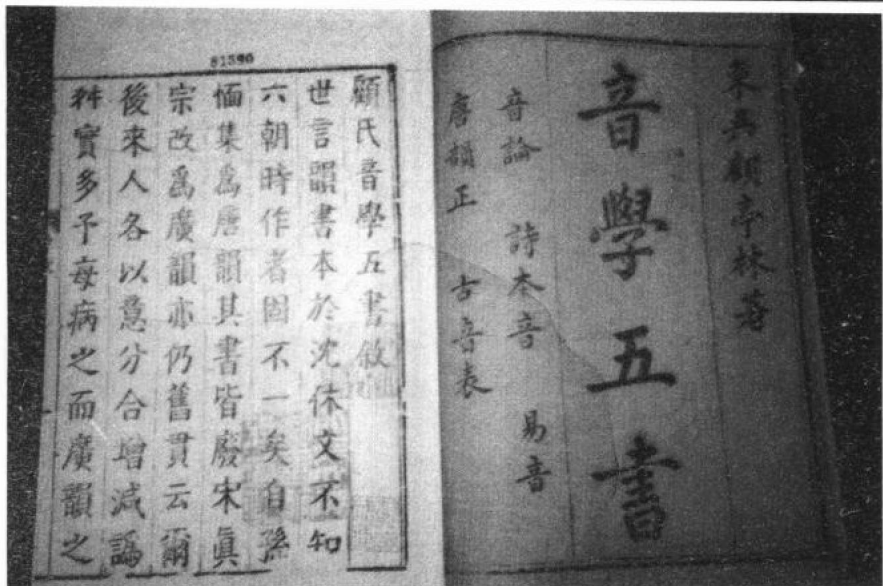 東吳顧亭林著
音學五書
音論 詩本音 易音
唐韻正 古音表
81390
顧氏音學五書敘
世言韻書本於沈休文不知
六朝時作者固不一矣自孫
愐集爲唐韻其書皆廢宋眞
宗改爲廣韻亦仍舊貫云爾
後來人各以意分合增減譌
舛實多予每病之而廣韻之